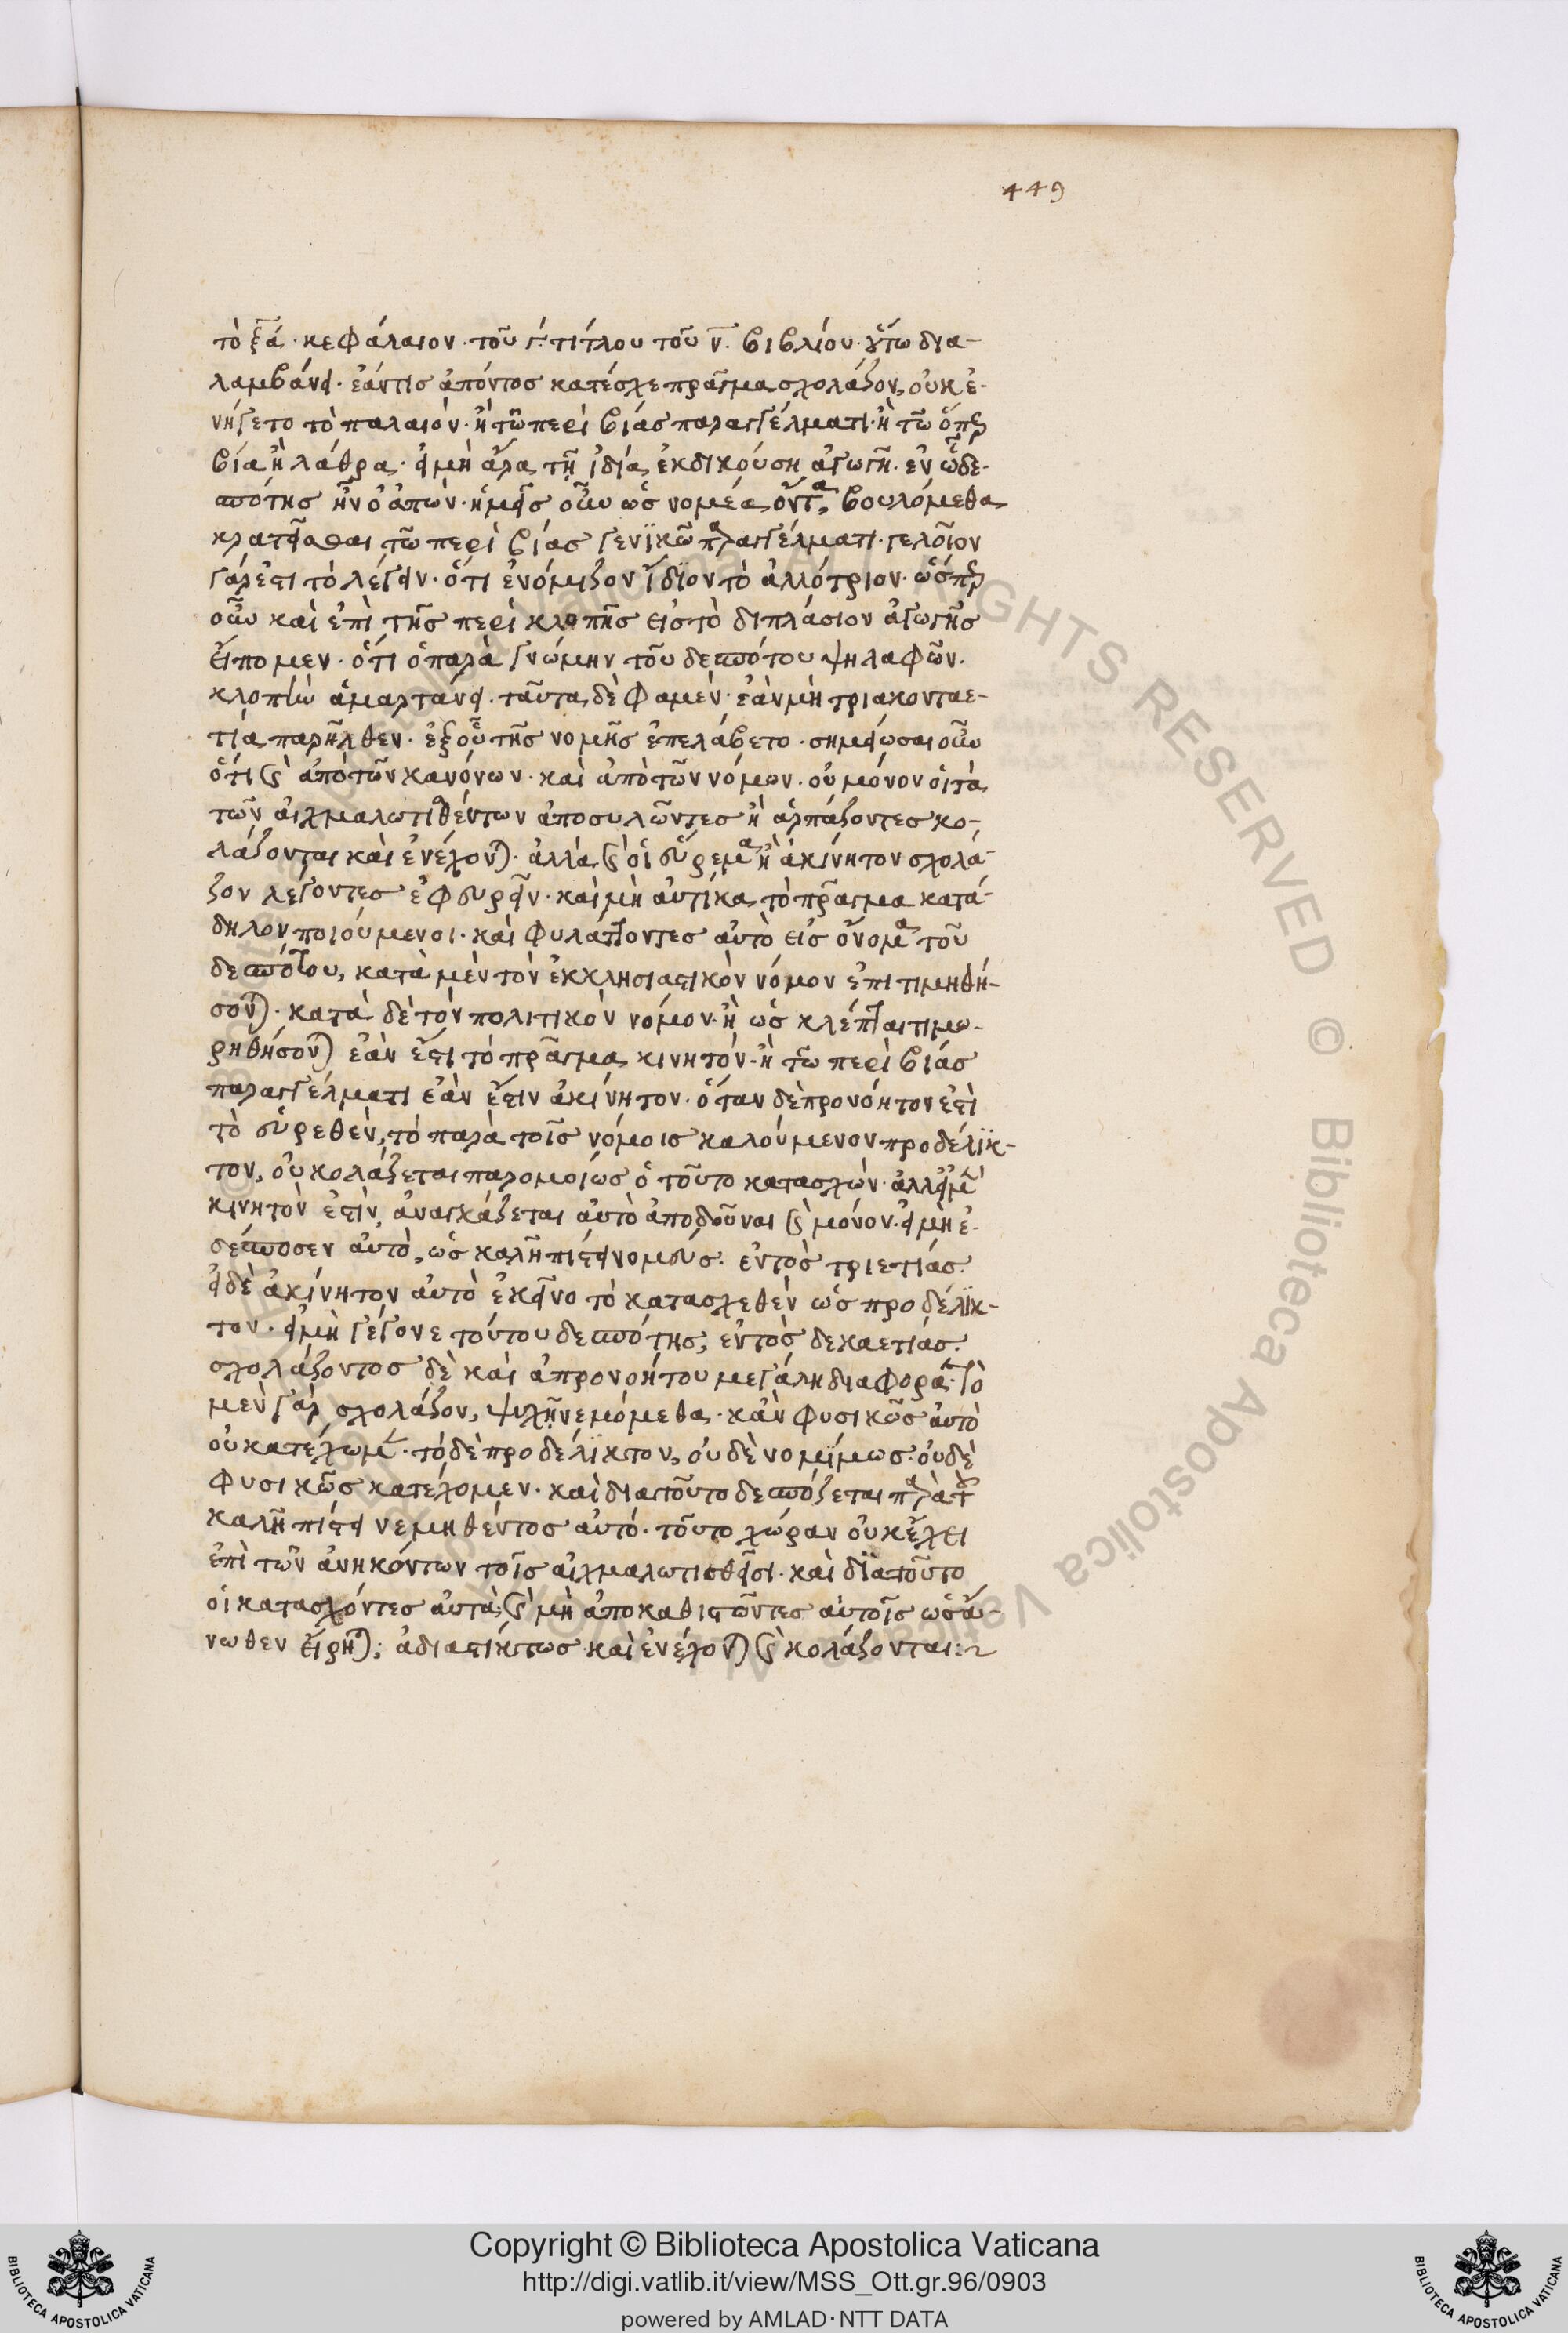 449
τὸ ξα. κεφάλαιον. τοῦ γ. τίτλου τοῦ ν. βιβλίου. οὕτω δια-
λαμβάνει. ἐάν τις ἀπόντος κατέσχε πρᾶγμα σχολάζον, οὐκ ἐ-
νήγετο τὸ παλαιὸν. ἢ τῶ περὶ βίας παραγγέλματι. ἢ τῶ ὅπερ
βία ἢ λάθρα. εἰ μὴ ἄρα τῆ ἰδία ἐκδικούση ἀγωγῆ. ἐν ὧ δε-
σπότης ἦν ὁ ἀπὼν. ἡμεῖς οὖν ὡς νομέα ὄντα, βουλόμεθα
κρατεῖσθαι τῶ περὶ βίας γενϊκῶ παραγγέλματι. γελοῖον
γάρ ἐστι τὸ λέγειν. ὅτι ἐνόμιζον ἴδϊον τὸ ἀλλότριον. ὥσπερ
οὖν καὶ ἐπὶ τῆς περὶ κλοπῆς εἰς τὸ διπλάσιον ἀγωγῆς
εἴπομεν. ὅτι ὁ παρὰ γνώμην τοῦ δεσπότου ψηλαφῶν.
κλοπὴν ἁμαρτάνει. ταῦτα δὲ φαμὲν. ἐὰν μὴ τριακονταε-
τία παρῆλθεν. ἐξ οὗ τῆς νομῆς ἐπελάβετο. σημείωσαι οὖν
ὅτι καὶ ἀπὸ τῶν κανόνων. καὶ ἀπὸ τῶν νόμων. οὐ μόνον οἱ τὰ
τῶν αἰχμαλωτισθέντων ἀποσυλῶντες ἢ ἁρπάζοντες κο-
λάζονται καὶ ἐνέχονται. ἀλλὰ καὶ οἱ εὕρεμα ἢ ἀκίνητον σχολά-
ζον λέγοντες ἐφευρεῖν. καὶ μὴ αὐτίκα τὸ πρᾶγμα κατά-
δηλον ποιούμενοι. καὶ φυλάττοντες αὐτὸ εἰς ὄνομα τοῦ
δεσπότου, κατὰ μὲν τὸν ἐκκλησιαστικὸν νόμον ἐπιτιμηθή-
σονται. κατὰ δὲ τὸν πολιτικὸν νόμον. ἢ ὡς κλέπται τιμω-
ρηθήσονται ἐὰν ἔστι τὸ πρᾶγμα κινητὸν. ἢ τῶ περὶ βίας
παραγγέλματι ἐὰν ἔστιν ἀκίνητον. ὅταν δὲ προνόητον ἐστὶ
τὸ εὑρεθὲν, τὸ παρὰ τοῖς νόμοις καλούμενον προδέλϊκ-
τον, οὐ κολάζεται παρομοίως ὁ τοῦτο κατασχὼν. ἀλλ' εἰ μὲν
κινητὸν ἐστὶν, ἀναγκάζεται αὐτὸ ἀποδοῦναι καὶ μόνον. εἰ μὴ ἐ-
δέσποσεν αὐτὸ, ὡς καλῆ πίστει νομεὺς. ἐντὸς τριετίας.
εἰ δὲ ἀκίνητον αὐτὸ ἐκεῖνο τὸ κατασχεθὲν ὡς προδέλϊκ-
τον. εἰ μὴ γέγονε τούτου δεσπότης, ἐντὸς δεκαετίας.
σχολάζοντος δὲ καὶ ἀπρονοήτου μεγάλη διαφορά. τὸ
μὲν γὰρ σχολάζον, ψυχῆ νεμόμεθα. κἂν φυσικῶς αὐτὸ
οὐ κατέχωμεν. τὸ δὲ προδέλϊκτον, οὐδὲ νομίμως. οὐδὲ
φυσικῶς κατέχομεν. καὶ διατοῦτο δεσπόζεται παρὰ τοῦ
καλῆ πίστει νεμηθέντος αὐτό. τοῦτο χώραν οὐκ ἔχει
ἐπὶ τῶν ἀνηκόντων τοῖς αἰχμαλωτισθεῖσι. καὶ διατοῦτο
οἱ κατασχόντες αὐτὰ, καὶ μὴ ἀποκαθιστῶντες αὐτοῖς ὡς ἄ-
νωθεν εἴρηται; ἀδιαστίκτως καὶ ἐνέχονται καὶ κολάζονται:~
Copyright © Biblioteca Apostolica Vaticana
http://digi.vatlib.it/view/MSS_Ott.gr.96/0903
powered by AMLAD·NTT DATA